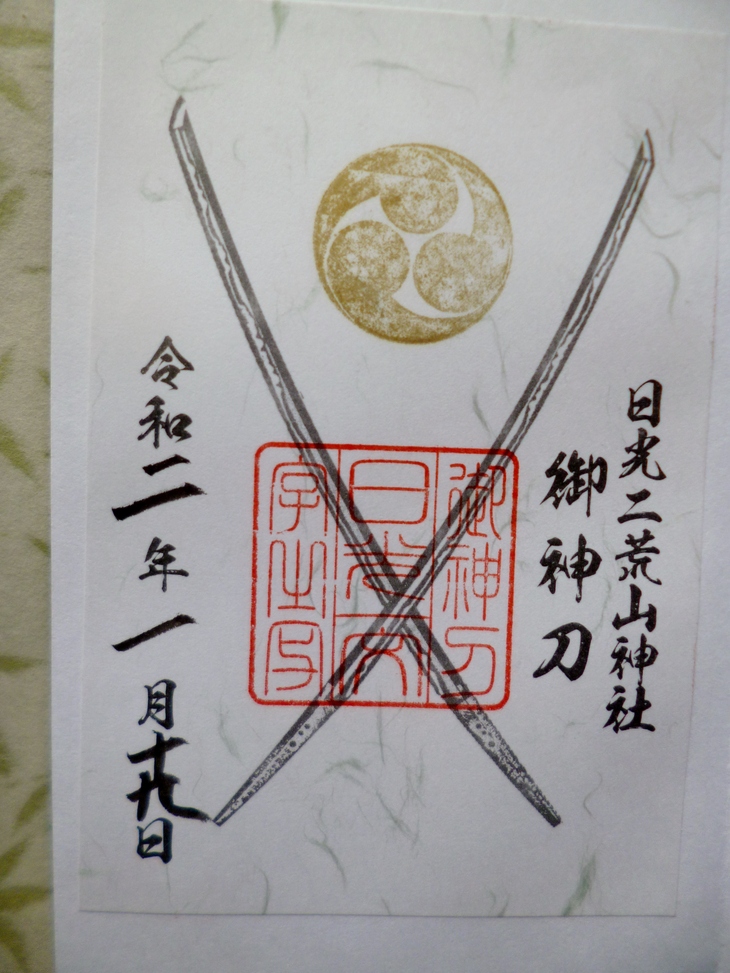 日光二荒山神社
御神刀
御神刀
日光
令和二年一月十九日